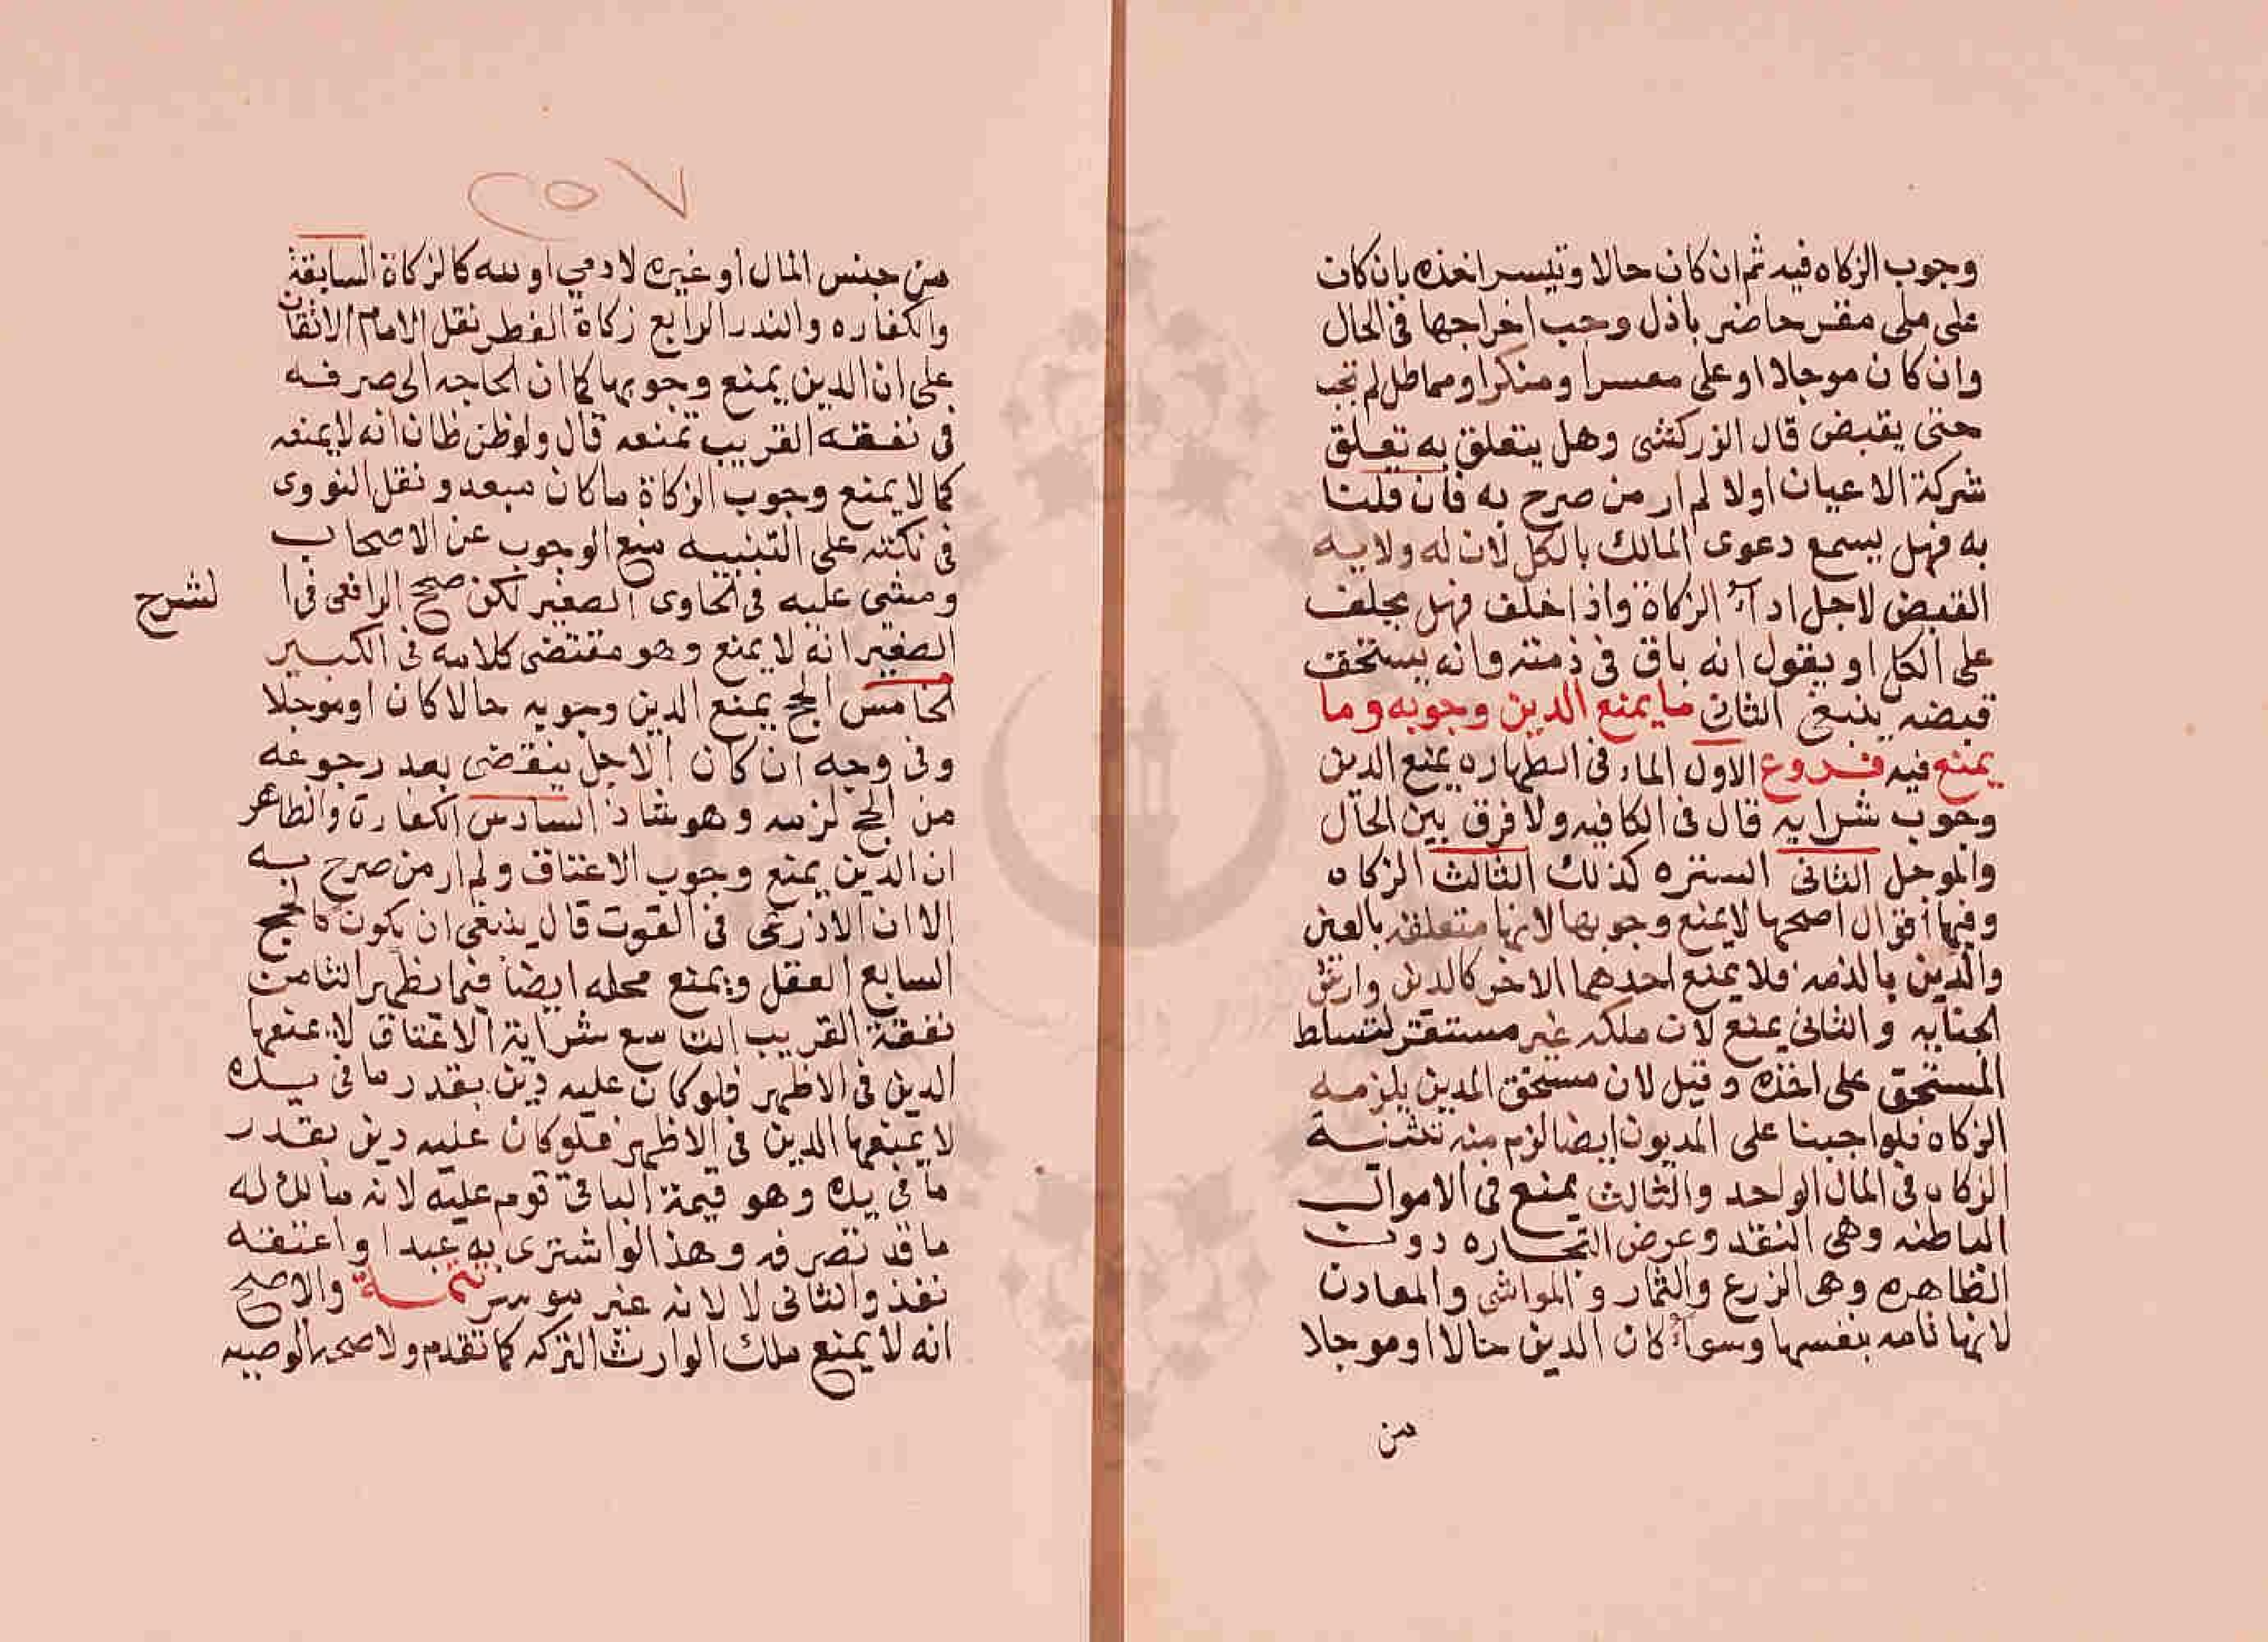 وجوب الزكاه فيه ثم ان كان حالا وتيسر اخذه بان كان
على ملى مقر حاضر باذل وجب اخراجها فى الحال
وان كان موجلا او على معسر او منكر او مماطل لم تجب
حتى يقبض قال الزركشى وهل يتعلق به تعلق
شركة الاعيان اولا لم ار من صرح به فان قلنا
به فهل يسمع دعوى المالك بالكل لان له ولاية
القبض لاجل اداء الزكاة واذا حلف فهل يحلف
على الكل او يقول انه باق فى ذمته وانه يستحق
قبضه ينبغى الثانى ما يمنع الدين وجوبه وما
يمنع فيه فروع الاول الماء فى الطهاره يمنع الدين
وجوب شرايه قال فى الكافيه ولا فرق بين الحال
والموجل الثانى الستره كذلك الثالث الزكاه
وفيها اقوال اصحها لا يمنع وجوبها لانها متعلقه بالعين
والدين بالذمه فلا يمنع احدهما الاخر كالدين وارش
الجنايه والثانى يمنع لان ملكه غير مستقر لتساط
المستحق على اخذه وقيل لان مستحق الدين يلزمه
الزكاه فلو اجبنا على المديون ايضا لزم منه تثنية
الزكاه فى المال الواحد والثالث يمنع فى الاموال
الباطنه وهى النقد وعرض التجاره دون
الظاهره وهى الزرع والثمار والمواشى والمعادن
لانها نامه بنفسها وسواء كان الدين حالا او موجلا
من
٢٥٧
من جنس المال او غيره لادمي او لله كالزكاة السابقة
والكفاره والنذر الرابع زكاة الفطر نقل الامام الاتفاق
على ان الدين يمنع وجوبها كما ان الحاجه الى صرفه
فى نفقه القريب تمنعه قال ولو ظن ظان انه لا يمنعه
كما لا يمنع وجوب الزكاة ما كان مبعد ونقل النووى
فى نكته على التنبيه منع الوجوب عن الاصحاب
ومشى عليه فى الحاوى الصغير لكن صحح الرافعى فى ا لشرح
الصغير انه لا يمنع وهو مقتضى كلامه فى الكبير
الخامس الحج يمنع الدين وجوبه حالا كان او موجلا
وفى وجه ان كان الاجل ينقضى بعد رجوعه
من الحج لزمه وهو شاذ السادس الكفارة والظاهر
ان الدين يمنع وجوب الاعتاق ولم ار من صرح به
الا ان الاذرعى فى القوت قال ينبغى ان يكون كالحج
السابع العقل ويمنع محله ايضا فيما يظهر الثامن
نفقة القريب التاسع شراية الاعتاق لا يمنعها
الدين فى الاظهر فلو كان عليه دين بقدر ما فى يده
لا يمنعها الدين فى الاظهر فلو كان عليه دين بقدر
ما فى يده وهو قيمة الباقى قوم عليه لانه مالك له
ماقد تصرفه وهذا لو اشترى به عبدا واعتقه
نفذ والثانى لا لانه غير موسر تتمة والاصح
انه لا يمنع ملك الوارث التركه كما تقدم ولا صحه الوصيه